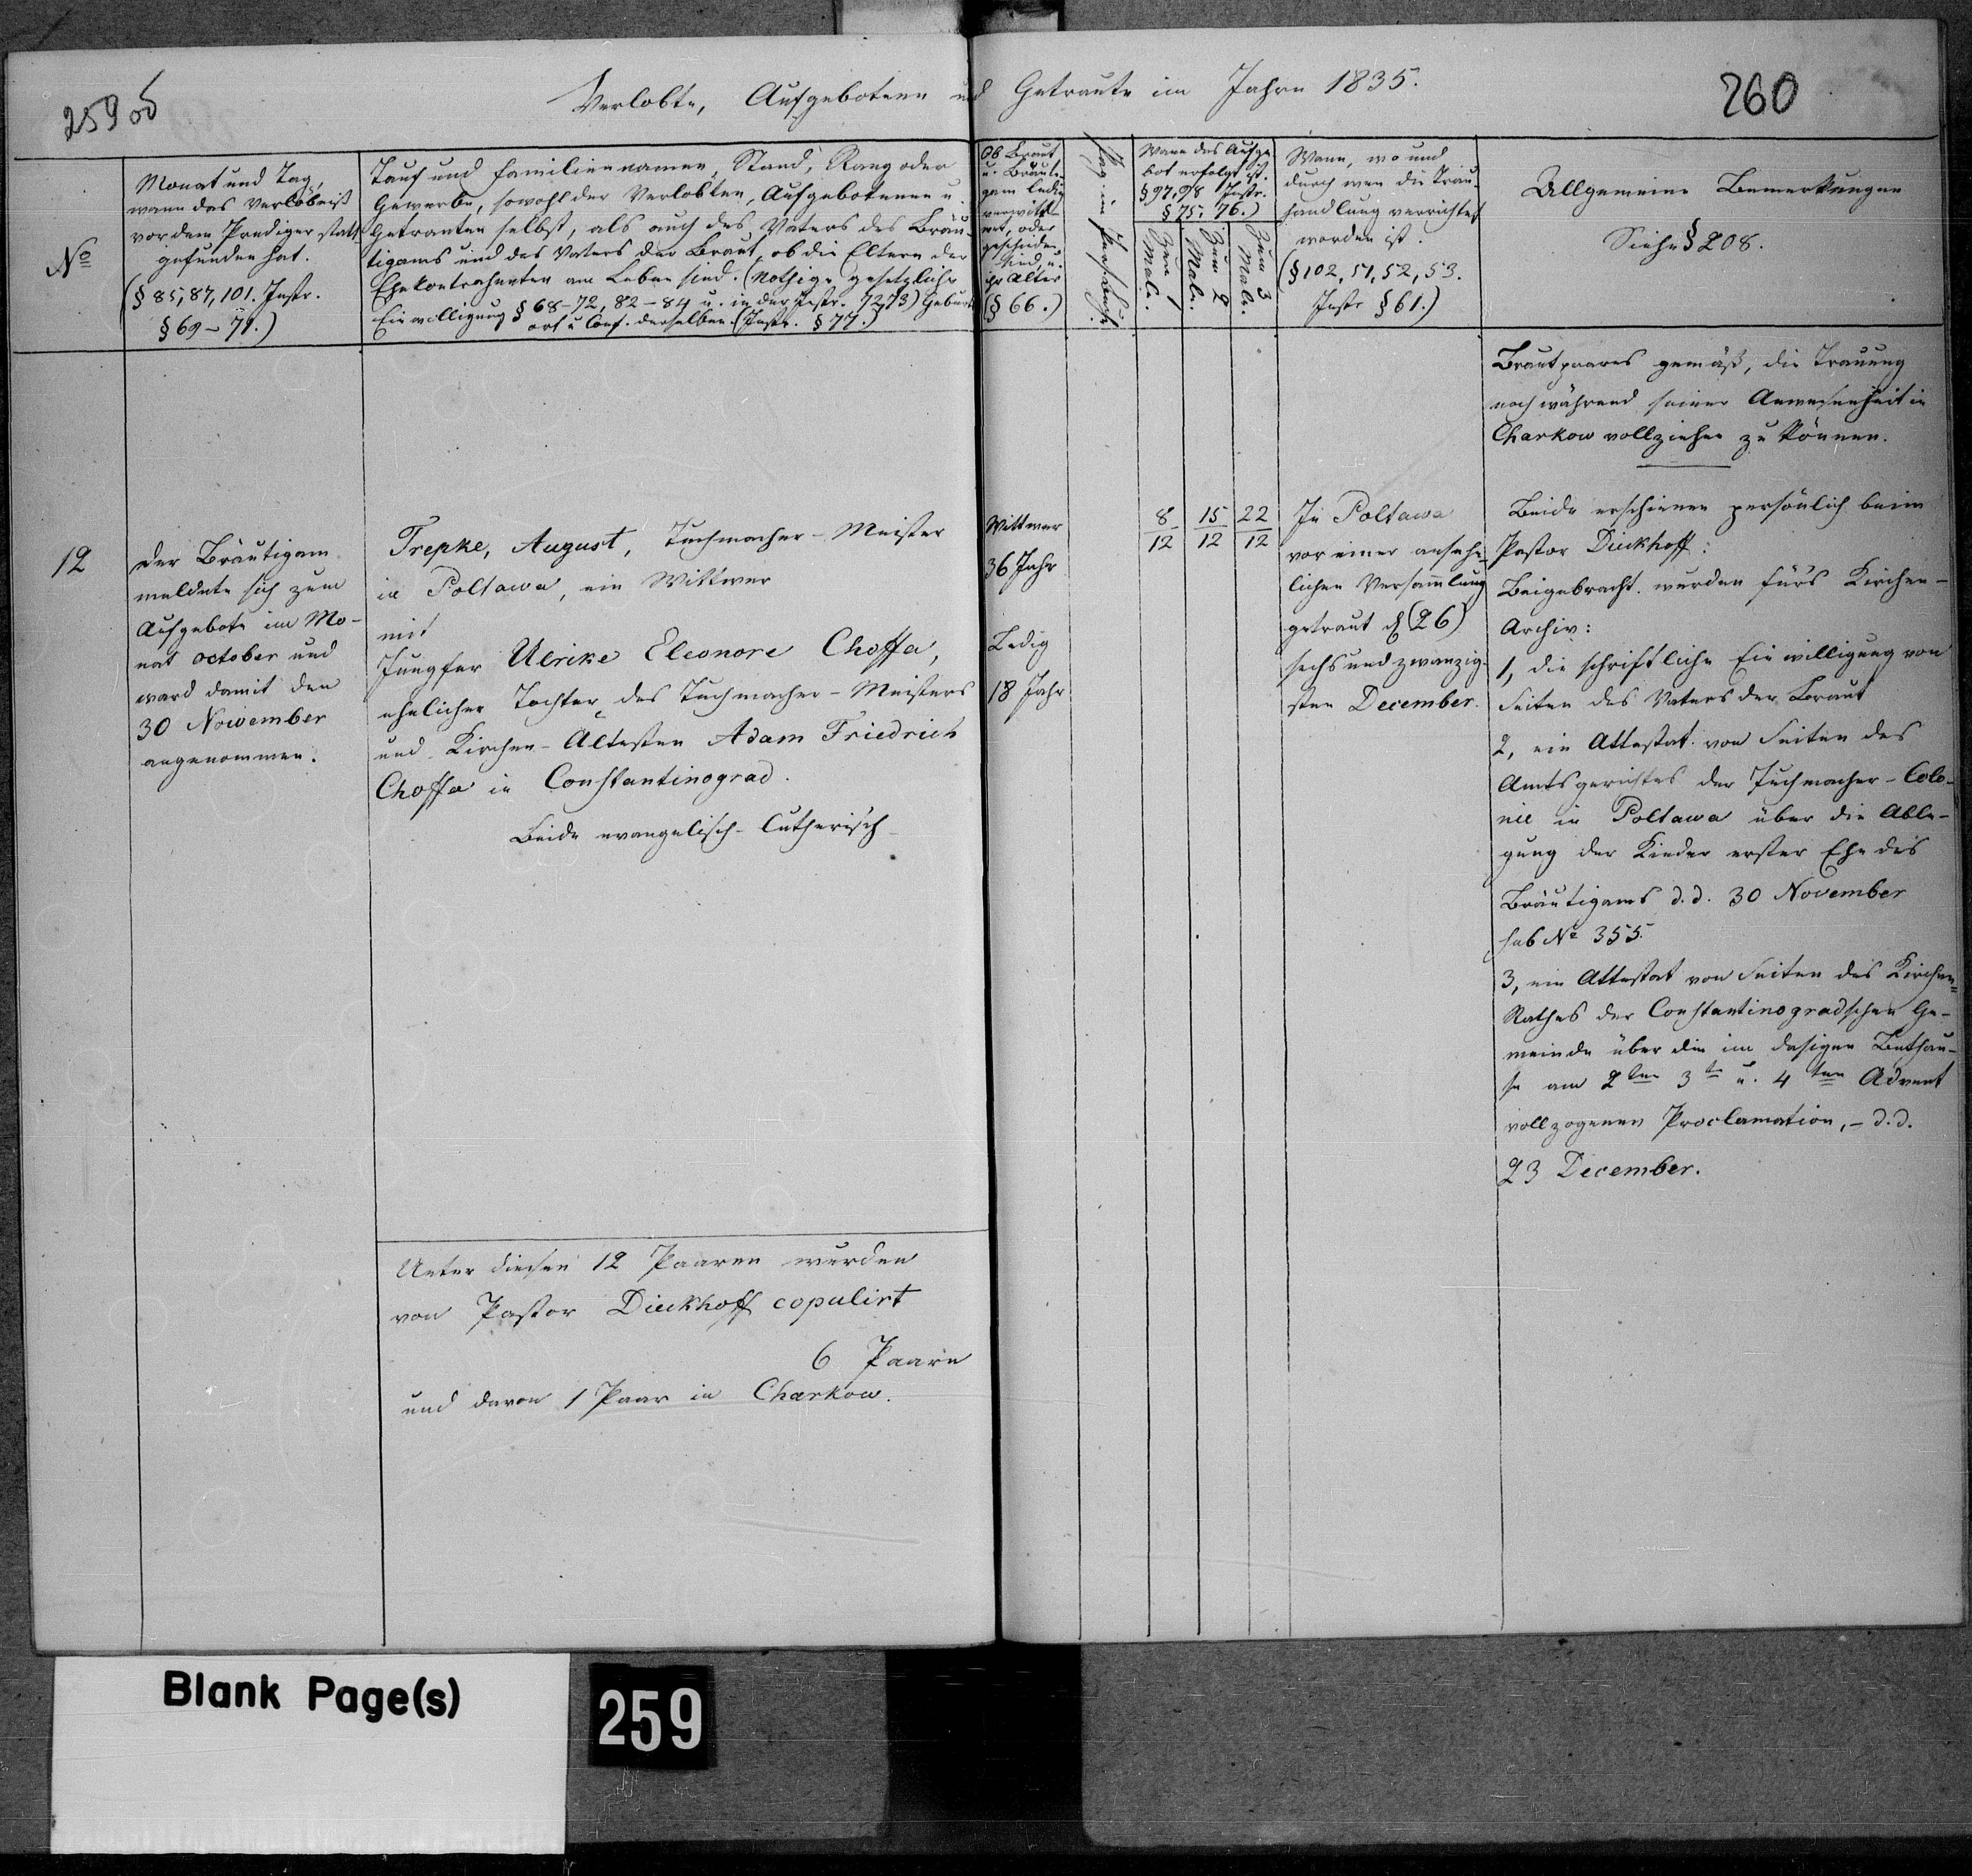 259 об
260
Verlobte, Aufgebotene und Getraute im Jahre 1835.
No
Monat und Tag,
wann das Verlöbniß
vor dem Prediger statt
gefunden hat.
(§ 85, 87, 101. Instr.
§ 69-71.)
Tauf und Familiennamen, Stand, Rang oder
Gewerbe, sowohl der Verlobten, Aufgebotenen u.
Getrauten selbst, als auch des Vaters des Bräu-
tigams und des Vaters der Braut, ob die Eltern der
Ehekontrahenten am Leben sind. (Nöthige gesetzliche
Einwilligung § 68-72, 82-84 u. in der Instr. 72, 73) Geburts
ort u Conf. derselben. (Instr. § 77.)
Ob Braut
u. Bräuti-
gam ledig
verwitt-
wet, oder
geschieden
sind, u.
ihr Alter
(§ 66.)
Wann das Aufge
bot erfolgt ist.
§ 97, 98 Instr.
§ 75, 76.)
Zum 1 Male.
Zum 2 Male.
Zum 3 Male.
Wann, wo und
durch wen die Trau-
handlung verrichtet
worden ist.
(§ 102, 51, 52, 53.
Instr § 61.)
Allgemeine Bemerkungen
Siehe § 208.
Brautpaares gemäß, die Trauung
noch während seiner Anwesenheit in
Charkow vollziehen zu können.
12
Der Bräutigam
meldete sich zum
Aufgebote im Mo-
nat october und
ward damit den
30 November
angenommen.
Trepke, August, Tuchmacher-Meister
in Poltawa, ein Wittwer
mit
Jungfer Ulrike Eleonore Choffa,
ehelicher Tochter des Tuchmacher-Meisters
und Kirchen-Ältesten Adam Friedrich
Choffa in Constantinograd.
Beide evangelisch-lutherisch
Wittwer
36 Jahr
Ledig
18 Jahr
8/12 15/12 22/12
In Poltawa
vor einer ansehn-
lichen Versammlung
getraut d (26)
sechsundzwanzig-
sten December.
Beide erschienen persönlich beim
Pastor Dieckhoff:
Beigebracht wurden fürs Kirchen-
Archiv:
1, die schriftliche Einwilligung von
Seiten des Vaters der Braut
2, ein Attestat von Seiten des
Amtsgerichtes der Tuchmacher-Colo-
nie in Poltawa über die Able-
gung der Kinder erster Ehe des
Bräutigams d.d. 30 November
sub No 355.
3, ein Attestat von Seiten des Kirchen=
Rathes der Constantinogradschen Ge-
meinde über die im dasigen Bethau-
se am 2ten 3t u. 4ten Advent
vollzogenen Proclamation, - d.d.
23 December.
Unter diesen 12 Paaren wurden
von Pastor Dieckhoff copulirt
6 Paare
und davon 1 Paar in Charkow.
Blank Page(s)
259